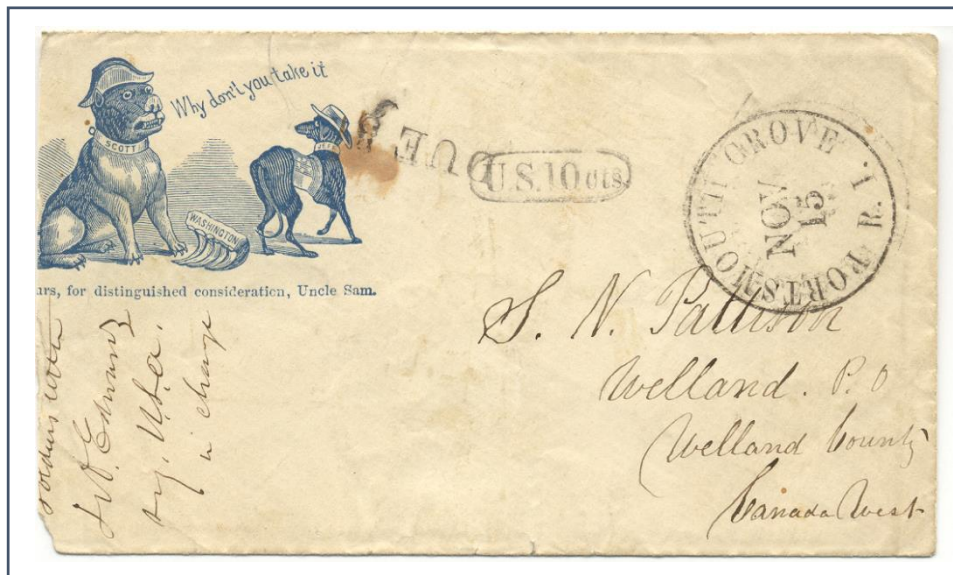 Why don't you take it
SCOTT
JEFF
WASHINGTON
urs, for distinguished consideration, Uncle Sam.
DUE
U.S.10cts
PORTSMOUTH GROVE R.I.
NOV
15
S. N. Pattison
Welland. P.O
Welland County
Canada West
Edwards
U.S.A.
in charge